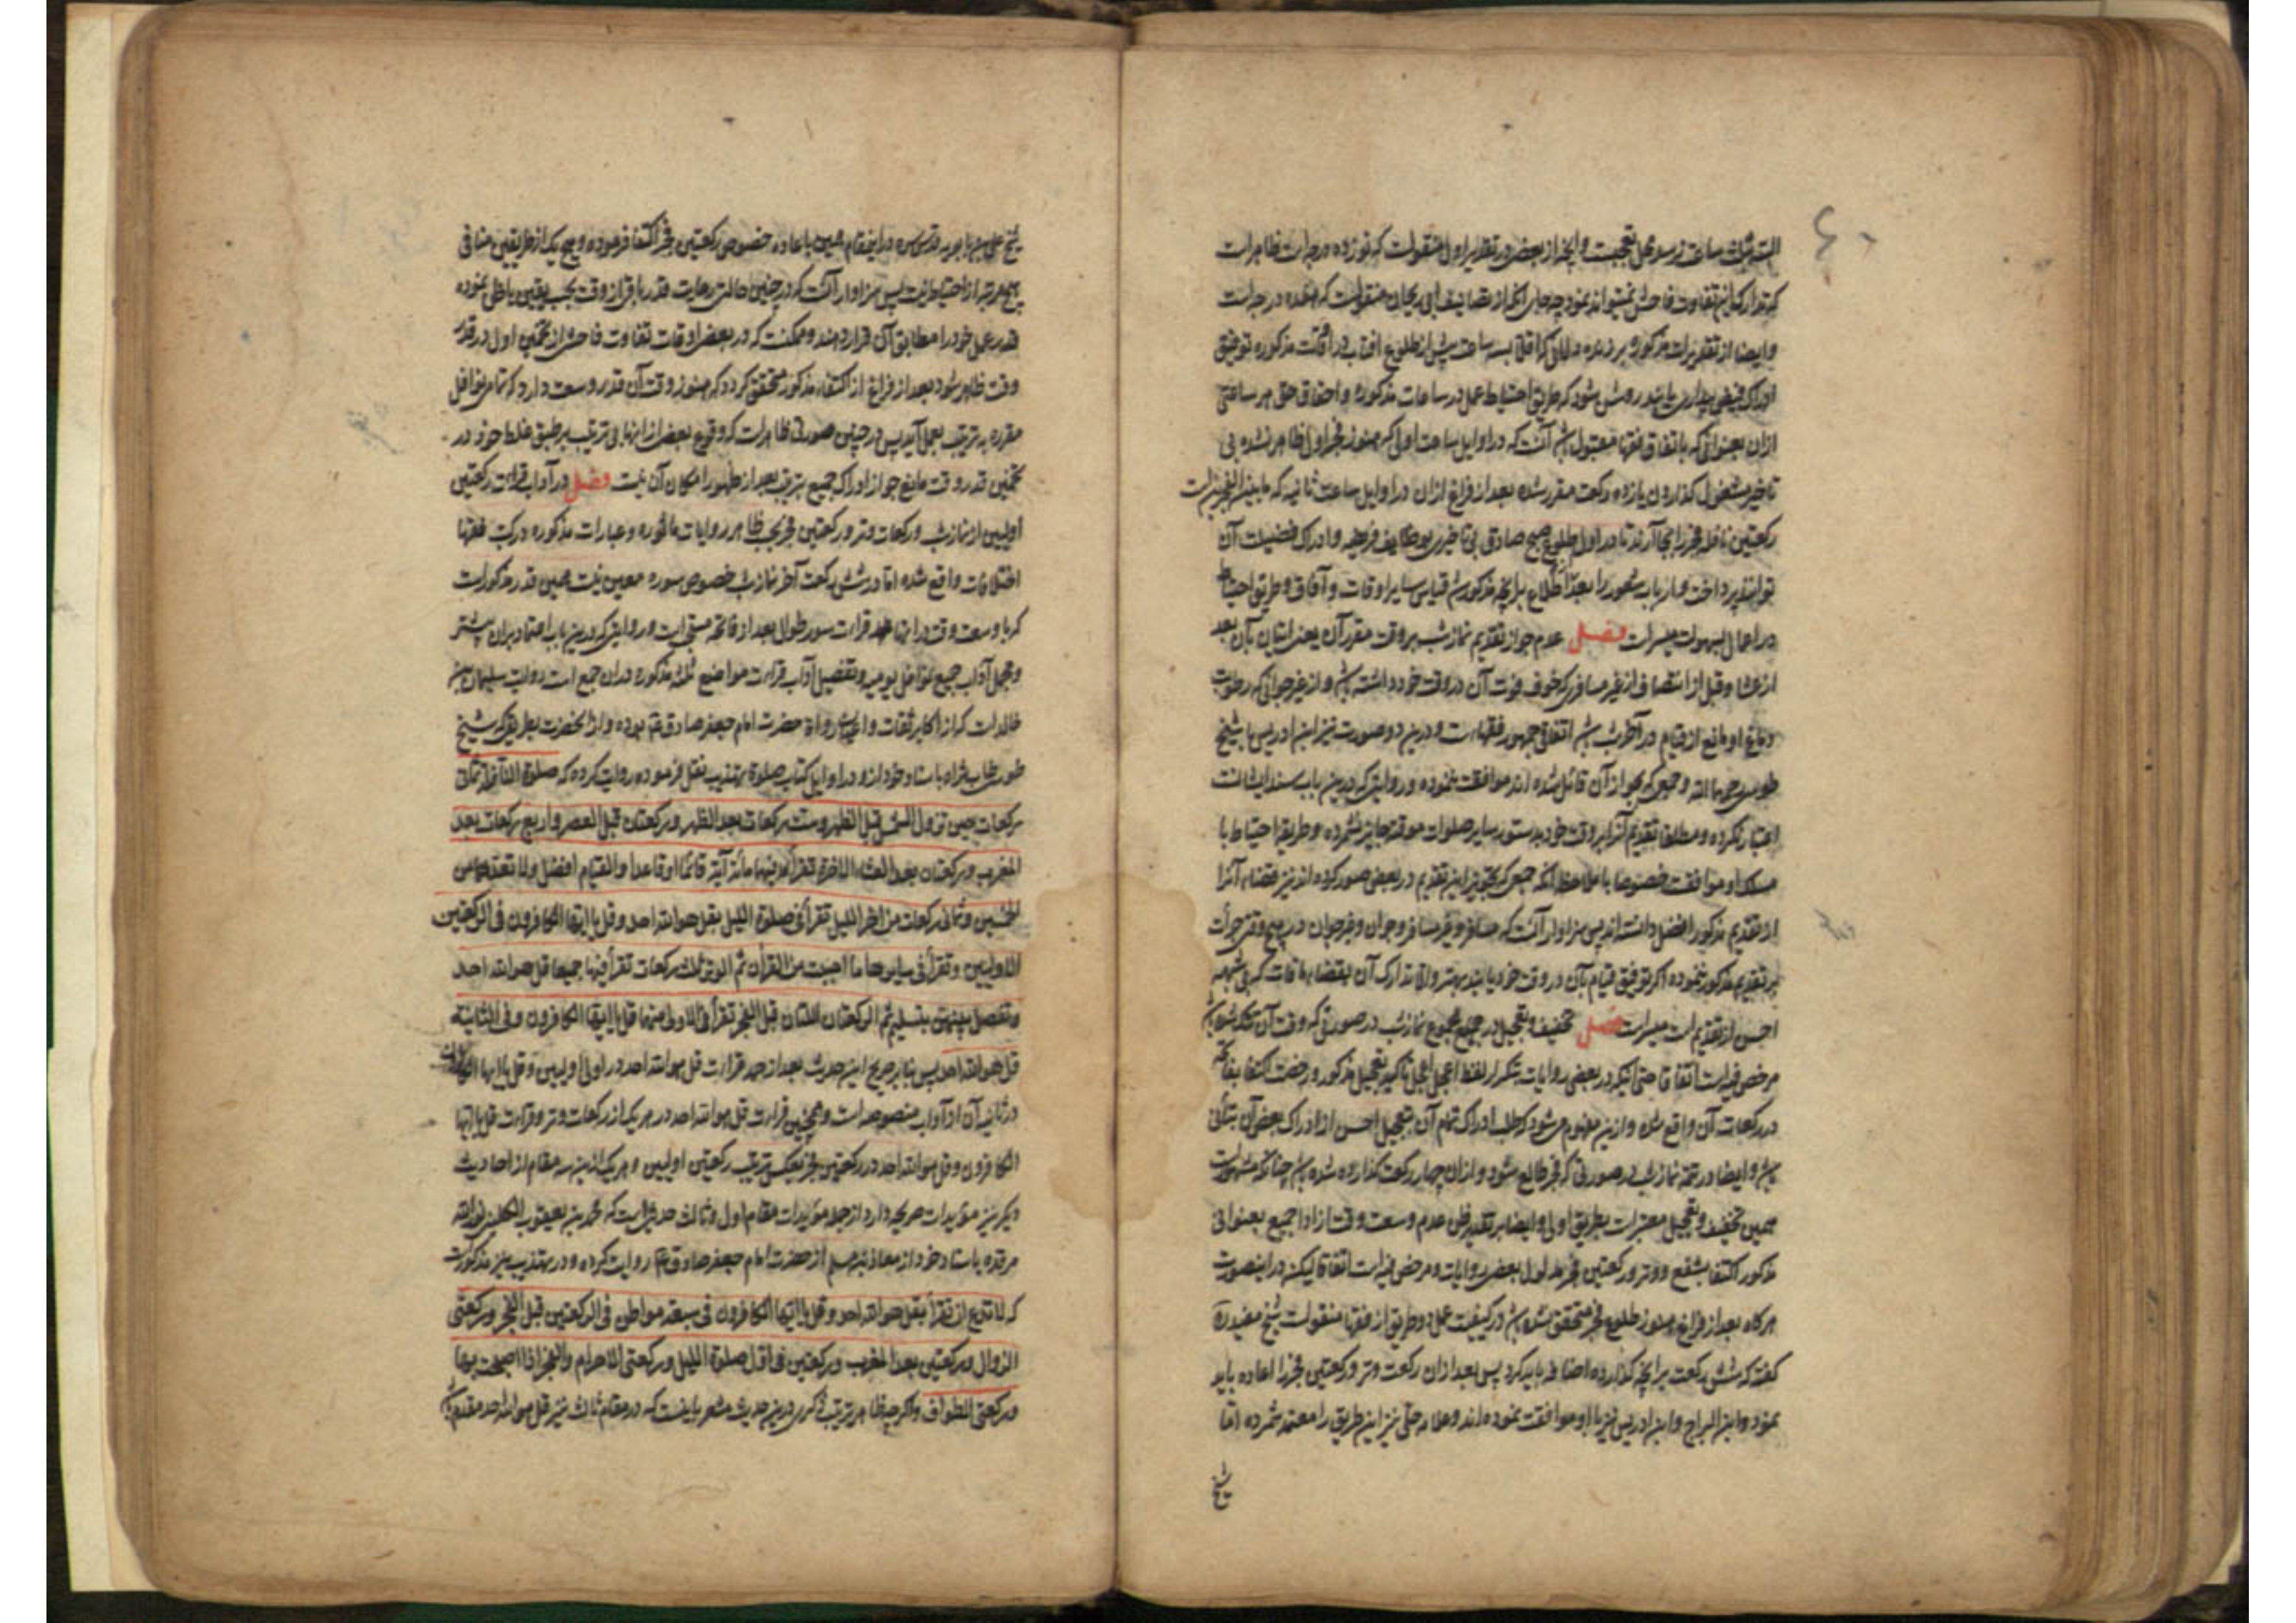 البته ثلث ساعت نرسد محل تعجبست و آنچه از بعض در تقدیر اول منقولست که نوزده درجه است ظاهر است
که تدارک این تفاوت فاحش نمیتواند نمود چه جای آنکه از تصانیف ابی ریحان منقولست که هفده درجه است
و ایضا از تقدیرات مذکوره بر زنده دلانی که اقلا بسه ساعت پیش از طلوع آفتاب در آفاقت مذکوره توفیق
ادراک فیض بیداری یابند روشن شود که طریق احتیاط عمل در ساعات مذکوره و احقاق حق هر ساعتی
ازان بعنوانی که باتفاق فقها مقبول باشد آنست که در اوایل ساعت اولی که هنوز فجر اول ظاهر نشده بی
تاخیر مشغول گذاردن یازده رکعت مقرر شده بعد از فراغ ازان در اوایل ساعت ثانیه که ما بین الفجرین است
رکعتین نافله فجر را بجا آرند تا در اول طلوع صبح صادق بی تاخیر بوظایف فریضه و ادراک فضیلت آن
توانند پرداخت و ارباب شعور را بعد اطلاع بر آنچه مذکور شد قیاس سایر اوقات و آفاق و طریق احتیاط
در اعمال بسهولت میسر است فصل عدم جواز تقدیم نماز شب بر وقت مقرر آن یعنی اتیان بآن بعد
از عشا و قبل از انتصاف از غیر مسافری که خوف فوت آن در وقت خود داشته باشد و از غیر جوانی که رطوبت
دماغ او مانع از قیام در آخر شب باشد اتفاقی جمهور فقهاست و درین دو صورت نیز ابن ادریس با شیخ
طوسی رحمهما الله و جمعی که بجواز آن قائل شده اند موافقت ننموده و روایتی که درین باب سند ایشانست
اعتبار نکرده و مطلقا تقدیم آنرا بر وقت خود بدستور سایر صلوات موقته جایز نشمرده و طریق احتیاط با
مسلک او موافقست خصوصا با ملاحظه آنکه جمعی که تجویز این تقدیم در بعض صور کرده اند نیز قضاء آنرا
از تقدیم مذکور افضل دانسته اند پس سزاوار آنست که مسافر و غیر مسافر و جوان و غیر جوان در هیچ وقتی جرأت
بر تقدیم مذکور ننموده اگر توفیق قیام بآن در وقت خود یابند بهتر و الا تدارک آن بقضاء مافات که بی شبهه
احسن از تقدیم است میسر است فصل تخفیف و تعجیل در جمیع مجموع نماز شب در صورتی که وقت آن تنگ شده باشد
مرخص فیه است اتفاقا حتی آنکه در بعض روایات بتکرار لفظ اعجل اعجل تاکید تعجیل مذکور و رخصت اکتفا بفاتحه
در رکعات آن واقع شده و ازین مفهوم میشود که طلب ادراک تمام آن بتعجیل احسن از ادراک بعض آن بتأنی
باشد و ایضا در تتمه نماز شب در صورتی که فجر طالع شود و ازان چهار رکعت گذارده شده باشد چنانکه مشهورست
همین تخفیف و تعجیل معتبر است بطریق اولی و ایضا بر تقدیر ظن عدم وسعت وقت از ادا جمیع بعنوانی
مذکور اکتفا بشفع و وتر و رکعتین فجر مدلول بعض روایات و مرخص فیه است اتفاقا لیکن در اینصورت
هرگاه بعد از فراغ هنوز طلوع فجر متحقق نشده باشد در کیفیت عمل دو طریق از فقها منقولست شیخ مفید ره
گفته که شش رکعت بر آنچه گذارده اضافه باید کرد پس بعد ازان رکعت وتر و رکعتین فجر را اعاده باید
نمود و ابن البراج و ابن ادریس نیز با او موافقت نموده اند و علامه حلی نیز این طریق را معتمد شمرده اما
شیخ
شیخ علی بن بابویه قدس سره در اینمقام همین باعاده خصوص رکعتین فجر اکتفا فرموده و هیچ یک از طریقین منافی
هیچ مرتبه از احتیاط نیست پس سزاوار آنست که در چنین حالتی رعایت قدر باقی از وقت بحسب یقین یا ظن نموده
قدر عمل خود را مطابق آن قرار دهند و ممکنست که در بعض اوقات تفاوت فاحش از تخمین اول در قدر
وقت ظاهر شود بعد از فراغ از اکتفاء مذکور متحقق گردد که هنوز وقت آن قدر وسعت دارد که تمام نوافل
مقرره بترتیب بعمل آید پس در چنین صورتی ظاهر است که وقوع بعض از اینها بی ترتیب بر طبق غلط خود در
تخمین قدر وقت مانع جواز ادراک جمیع بترتیب بعد از ظهور امکان آن نیست فصل در آداب قرائت رکعتین
اولیین از نماز شب و رکعات وتر و رکعتین فجر بحسب ظاهر روایات ماثوره و عبارات مذکوره در کتب فقها
اختلافات واقع شده اما در شش رکعت آخر نماز شب خصوص سوره معین نیست همین قدر مذکورست
که با وسعت وقت در اینها قراءت سور طوال بعد از فاتحه مستحب است و روایتی که درین باب اعتماد بران بیشتر
و مجمل آداب جمیع نوافل یومیه و تفصیل آداب قراءت مواضع ثلثه مذکوره دران جمع است روایت سلیمان بن
خالد است که از اکابر ثقات و اعیان رواة حضرت امام جعفر صادق ع بوده و از آنحضرت بطریقی که شیخ
طوسی طاب ثراه باسناد خود ازو در اوایل کتاب صلوة تهذیب نقل فرموده روایت کرده که صلوة النافلة ثمانی
رکعات حین تزول الشمس قبل الظهر و ست رکعات بعد الظهر و رکعتان قبل العصر و اربع رکعات بعد
المغرب و رکعتان بعد العشاء الاخرة تقرأ فیهما مائة آیة قائما او قاعدا و القیام افضل و لا تعدهما من
الخمسین و ثمانی رکعات من اخر اللیل تقرأ فی صلوة اللیل بقل هو الله احد و قل یا ایها الکافرون فی الرکعتین
الاولیین و تقرأ فی سایرها ما احببت من القرآن ثم الوتر ثلث رکعات تقرأ فیها جمیعا قل هو الله احد
و تفصل بینهن بتسلیم ثم الرکعتان اللتان قبل الفجر تقرأ فی الاولی منهما قل یا ایها الکافرون و فی الثانیة
قل هو الله احد پس بنابر صریح این حدیث بعد از حمد قراءت قل هو الله احد در اولی اولیین و قل یا ایها الکافرون
در ثانیه آن از آداب منصوصه است و همچنین قراءت قل هو الله احد در هر یک از رکعات وتر و قراءت قل یا ایها
الکافرون و قل هو الله احد در رکعتین فجر بعکس ترتیب رکعتین اولیین و هر یک ازین سه مقام از احادیث
دیگر نیز مؤیدات صریحه دارد از جمله مؤیدات مقام اول و ثالث حدیثی است که محمد بن یعقوب الکلینی نور الله
مرقده باسناد خود از معاذ بن مسلم از حضرت امام جعفر صادق ع روایت کرده و در تهذیب نیز مذکورست
که لا تدع ان تقرأ بقل هو الله احد و قل یا ایها الکافرون فی سبعة مواطن فی الرکعتین قبل الفجر و رکعتی
الزوال و رکعتین بعد المغرب و رکعتین فی اول صلوة اللیل و رکعتی الاحرام و الفجر اذا اصبحت بها
و رکعتی الطواف و اگرچه ظاهر ترتیب ذکری درین حدیث مشعر باینست که در مقام ثالث نیز قل هو الله احد مقدم باشد